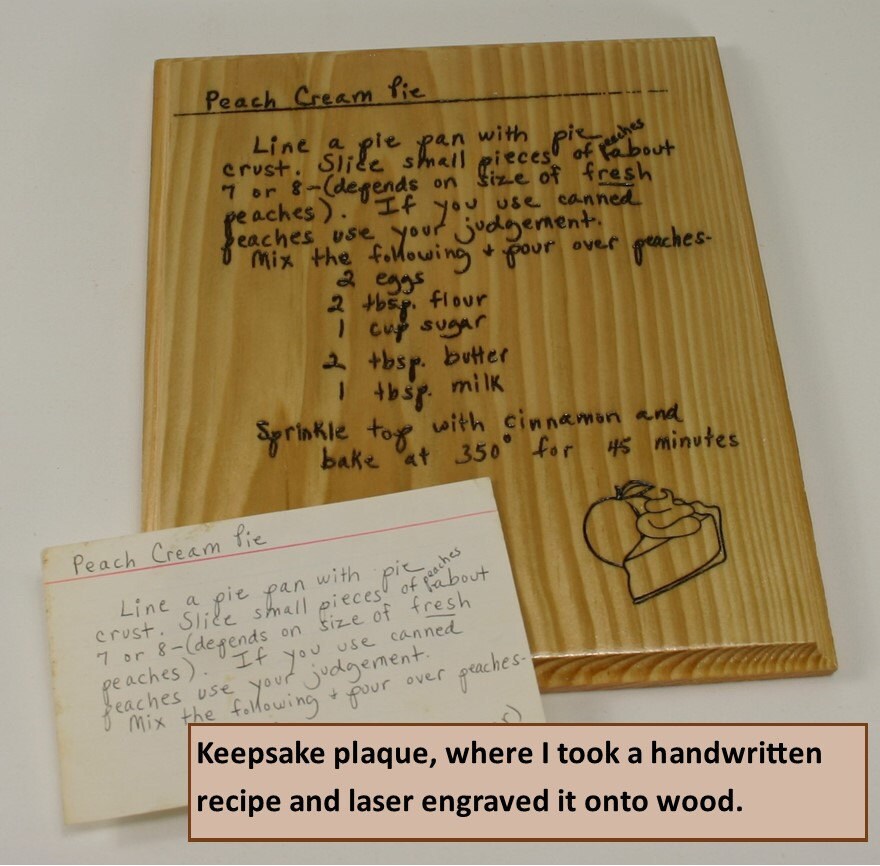 Peach Cream Pie
Line a pie pan with pie
crust. Slice small pieces of peaches about
7 or 8-(depends on size of fresh
peaches). If you use canned
peaches use your judgement.
Mix the following + pour over peaches-
2 eggs
2 tbsp. flour
1 cup sugar
2 tbsp. butter
1 tbsp. milk
Sprinkle top with cinnamon and
bake at 350° for 45 minutes
Peach Cream Pie
Line a pie pan with pie
crust. Slice small pieces of peaches about
7 or 8-(depends on size of fresh
peaches). If you use canned
peaches use your judgement.
Mix the following + pour over peaches-
Keepsake plaque, where I took a handwritten
recipe and laser engraved it onto wood.